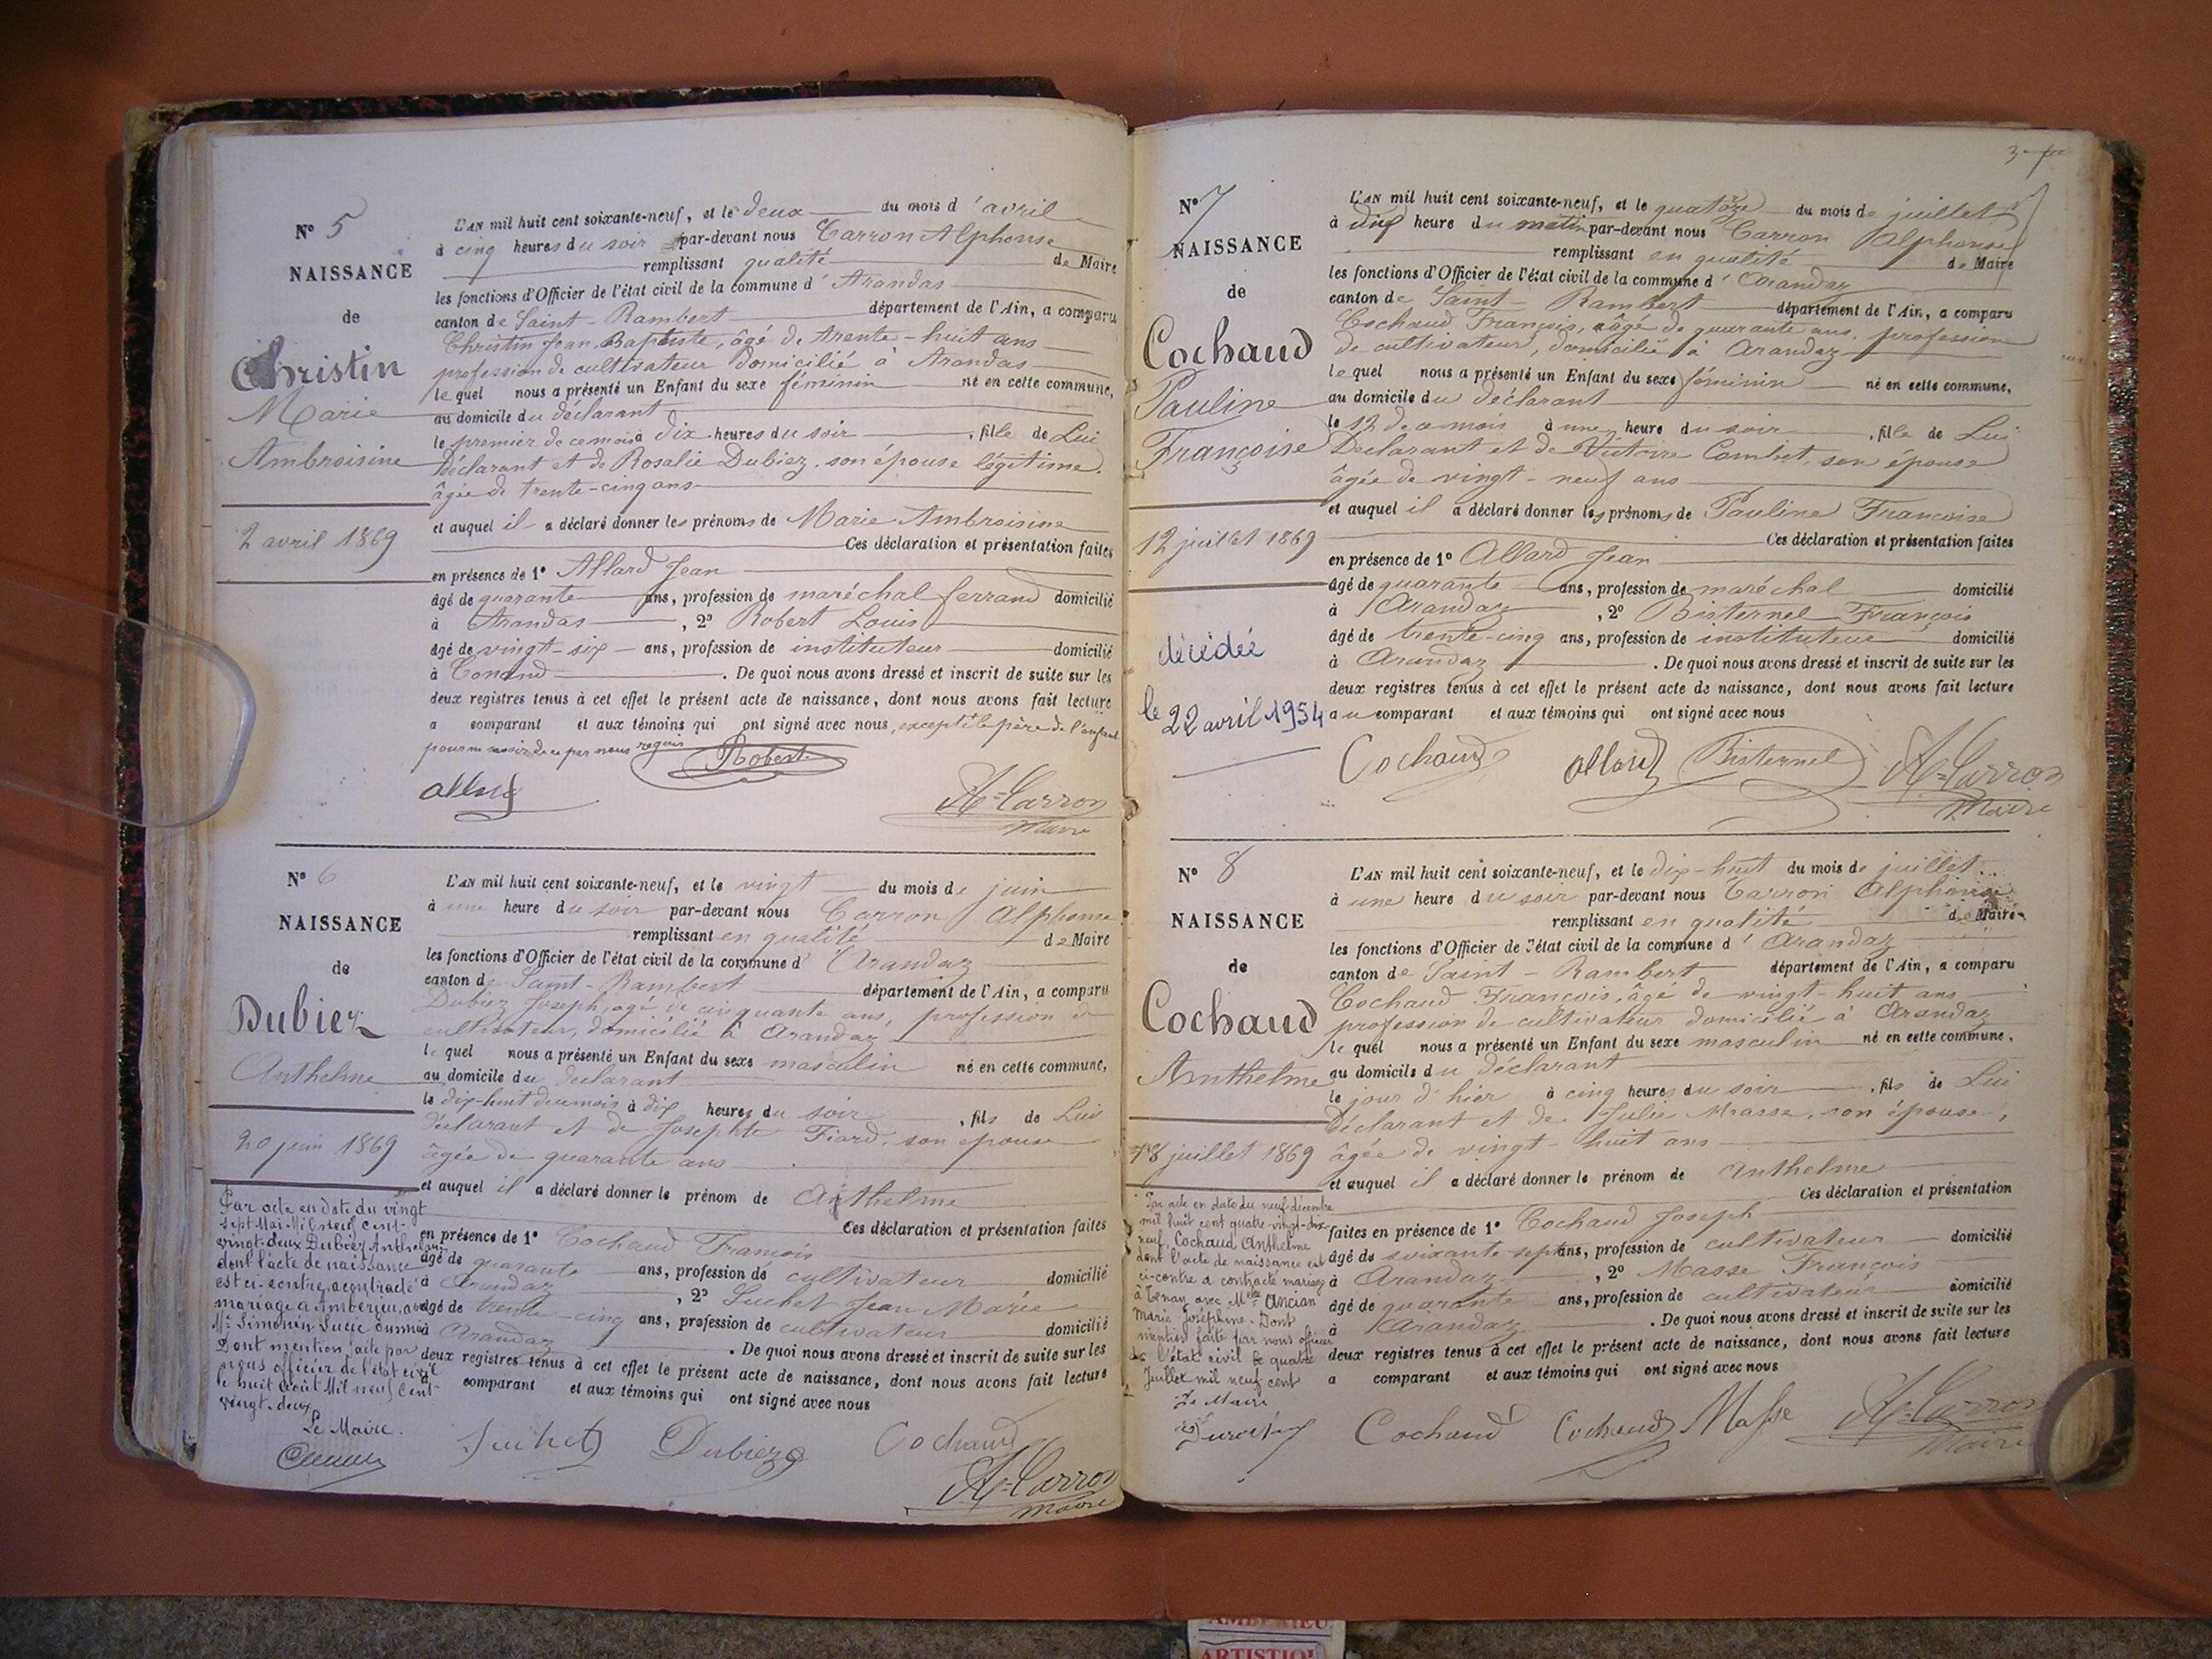 N° 5
NAISSANCE
de
Christin
Marie
Ambroisine
2 avril 1869
L'AN mil huit cent soixante-neuf, et le deux du mois d'avril
à cinq heures du soir par-devant nous Carron Alphonse
remplissant qualité de Maire
les fonctions d'Officier de l'état civil de la commune d'Arandas
canton de Saint-Rambert département de l'Ain, a comparu
Christin Jean Baptiste, âgé de trente-huit ans
profession de cultivateur domicilié à Arandas
lequel nous a présenté un Enfant du sexe féminin né en cette commune,
au domicile du déclarant
le premier de ce mois à dix heures du soir, fille de Lui
Déclarant et de Rosalie Dubiez, son épouse légitime.
âgée de trente-cinq ans
et auquel il a déclaré donner les prénoms de Marie Ambroisine
Ces déclaration et présentation faites
en présence de 1° Allard Jean
âgé de quarante ans, profession de maréchal ferrand domicilié
à Arandas, 2° Robert Louis
âgé de vingt-six ans, profession de instituteur domicilié
à Conand. De quoi nous avons dressé et inscrit de suite sur les
deux registres tenus à cet effet le présent acte de naissance, dont nous avons fait lecture
a comparant et aux témoins qui ont signé avec nous, excepté le père de l'enfant
pour ne savoir de ce par nous requis
Robert
allard
A=Carron
Maire
N° 6
NAISSANCE
de
Dubiez
Anthelme
20 juin 1869
Par acte en date du vingt
sept Mai Mil neuf cent-
vingt-deux Dubiez Anthelme
dont l'acte de naissance
est ci-contre, a contracté
mariage à Ambérieu, avec
Simonin Lucie
Dont mention faite par
nous officier de l'état civil
le huit Août Mil neuf Cent-
vingt-deux
Le Maire.
L'AN mil huit cent soixante-neuf, et le vingt du mois de juin
à une heure du soir par-devant nous Carron Alphonse
remplissant en qualité de Maire
les fonctions d'Officier de l'état civil de la commune d'Arandaz
canton de Saint-Rambert département de l'Ain, a comparu
Dubiez Joseph, âgé de cinquante ans, profession de
cultivateur, domicilié à Arandaz
lequel nous a présenté un Enfant du sexe masculin né en cette commune,
au domicile du déclarant
le dix-huit du mois à dix heures du soir, fils de Lui
déclarant et de Josephte Fiard, son épouse
âgée de quarante ans
et auquel il a déclaré donner le prénom de Anthelme
Ces déclaration et présentation faites
en présence de 1° Cochaud François
âgé de quarante ans, profession de cultivateur domicilié
à Arandaz, 2° Suchet Jean Marie
âgé de trente-cinq ans, profession de cultivateur domicilié
à Arandaz. De quoi nous avons dressé et inscrit de suite sur les
deux registres tenus à cet effet le présent acte de naissance, dont nous avons fait lecture
comparant et aux témoins qui ont signé avec nous
Suchet Dubiez Cochaud
A=Carron
Maire
N° 7
NAISSANCE
de
Cochaud
Pauline
Françoise
12 juillet 1869
décédée
le 22 avril 1954
L'AN mil huit cent soixante-neuf, et le quatorze du mois de juillet
à dix heure du matin par-devant nous Carron Alphonse
remplissant en qualité de Maire
les fonctions d'Officier de l'état civil de la commune d'Arandaz
canton de Saint-Rambert département de l'Ain, a comparu
Cochaud François, âgé de quarante ans, profession
de cultivateur, domicilié à Arandaz
lequel nous a présenté un Enfant du sexe féminin né en cette commune,
au domicile du déclarant
le 12 de ce mois à une heure du soir, fille de Lui
Déclarant et de Victoire Combet, son épouse
âgée de vingt-neuf ans
et auquel il a déclaré donner les prénoms de Pauline Françoise
Ces déclaration et présentation faites
en présence de 1° Allard Jean
âgé de quarante ans, profession de maréchal domicilié
à Arandaz, 2° Bisternel François
âgé de trente-cinq ans, profession de instituteur domicilié
à Arandaz. De quoi nous avons dressé et inscrit de suite sur les
deux registres tenus à cet effet le présent acte de naissance, dont nous avons fait lecture
au comparant et aux témoins qui ont signé avec nous
Cochaud allard Bisternel A=Carron
Maire
N° 8
NAISSANCE
de
Cochaud
Anthelme
18 juillet 1869
Par acte en date du neuf décembre
mil huit cent quatre-vingt-dix-
neuf, Cochaud Anthelme
dont l'acte de naissance est
ci-contre a contracté mariage
à Tenay avec Melle Ancian
Marie Joséphine. Dont
mention faite par nous officier
de l'état civil le quatre
Juillet mil neuf cent
Le Maire
L'AN mil huit cent soixante-neuf, et le dix-huit du mois de juillet
à une heure du soir par-devant nous Carron Alphonse
remplissant en qualité de Maire
les fonctions d'Officier de l'état civil de la commune d'Arandaz
canton de Saint-Rambert département de l'Ain, a comparu
Cochaud François, âgé de vingt-huit ans
profession de cultivateur domicilié à Arandaz
lequel nous a présenté un Enfant du sexe masculin né en cette commune,
au domicile du déclarant
le jour d'hier à cinq heures du soir, fils de Lui
Déclarant et de Julie Masse, son épouse,
âgée de vingt-huit ans
et auquel il a déclaré donner le prénom de Anthelme
Ces déclaration et présentation
faites en présence de 1° Cochaud Joseph
âgé de soixante-sept ans, profession de cultivateur domicilié
à Arandaz, 2° Masse François
âgé de quarante ans, profession de cultivateur domicilié
à Arandaz. De quoi nous avons dressé et inscrit de suite sur les
deux registres tenus à cet effet le présent acte de naissance, dont nous avons fait lecture
a comparant et aux témoins qui ont signé avec nous
Cochaud Cochaud Masse A=Carron
Maire
ARTISTIQ